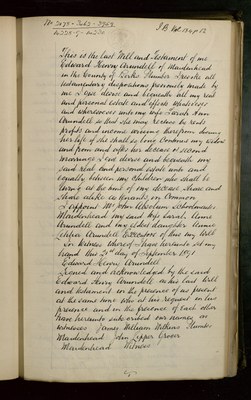 This is the last Will and Testament of me
Edward Henry Arundell of Maidenhead
in the County of Berks Plumber I revoke all
testamentary dispositions previously made by
me I give devise and bequeath all my real
and personal estate and effects whatsoever
and wheresoever unto my wife Sarah Anne
Arundell so that she may receive the rents
profits and income arising therefrom during
her life if she shall so long continue my widow
and from and after her decease or second
marriage I give devise and bequeath my
said real and personal estate unto and
equally between my children who shall be
living at the time of my decease share and
share alike as tenants in common
I appoint Mr John
Maidenhead my said wife Sarah Anne
Arundell and my eldest daughter Annie
Arundell Executors of this my Will
In Witness whereof I have hereunto set my
hand this 21st day of September 1891
Edward Henry Arundell
Signed and acknowledged by the said
Edward Henry Arundell as his last Will
and testament in the presence of us present
at the same time who at his request in his
presence and in the presence of each other
have hereunto subscribed our names as
witnesses James William Wilkins Plumber
Maidenhead John Grover
Maidenhead